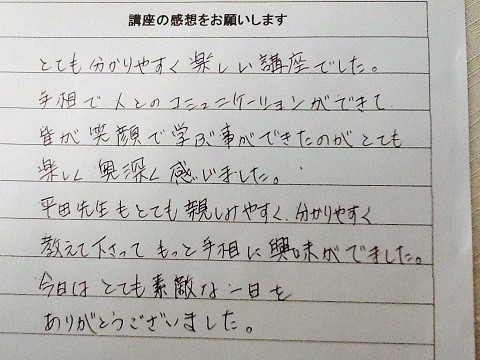 講座の感想をお願いします
とても分かりやすく楽しい講座でした。
手相で人とのコミュニケーションができて
皆が笑顔で学ぶ事ができたのがとても
楽しく奥深く感いました。
平田先生もとても親しみやすく、分かりやすく
教えて下さってもっと手相に興味がでました。
今日はとても素敵な一日を
ありがとうございました。